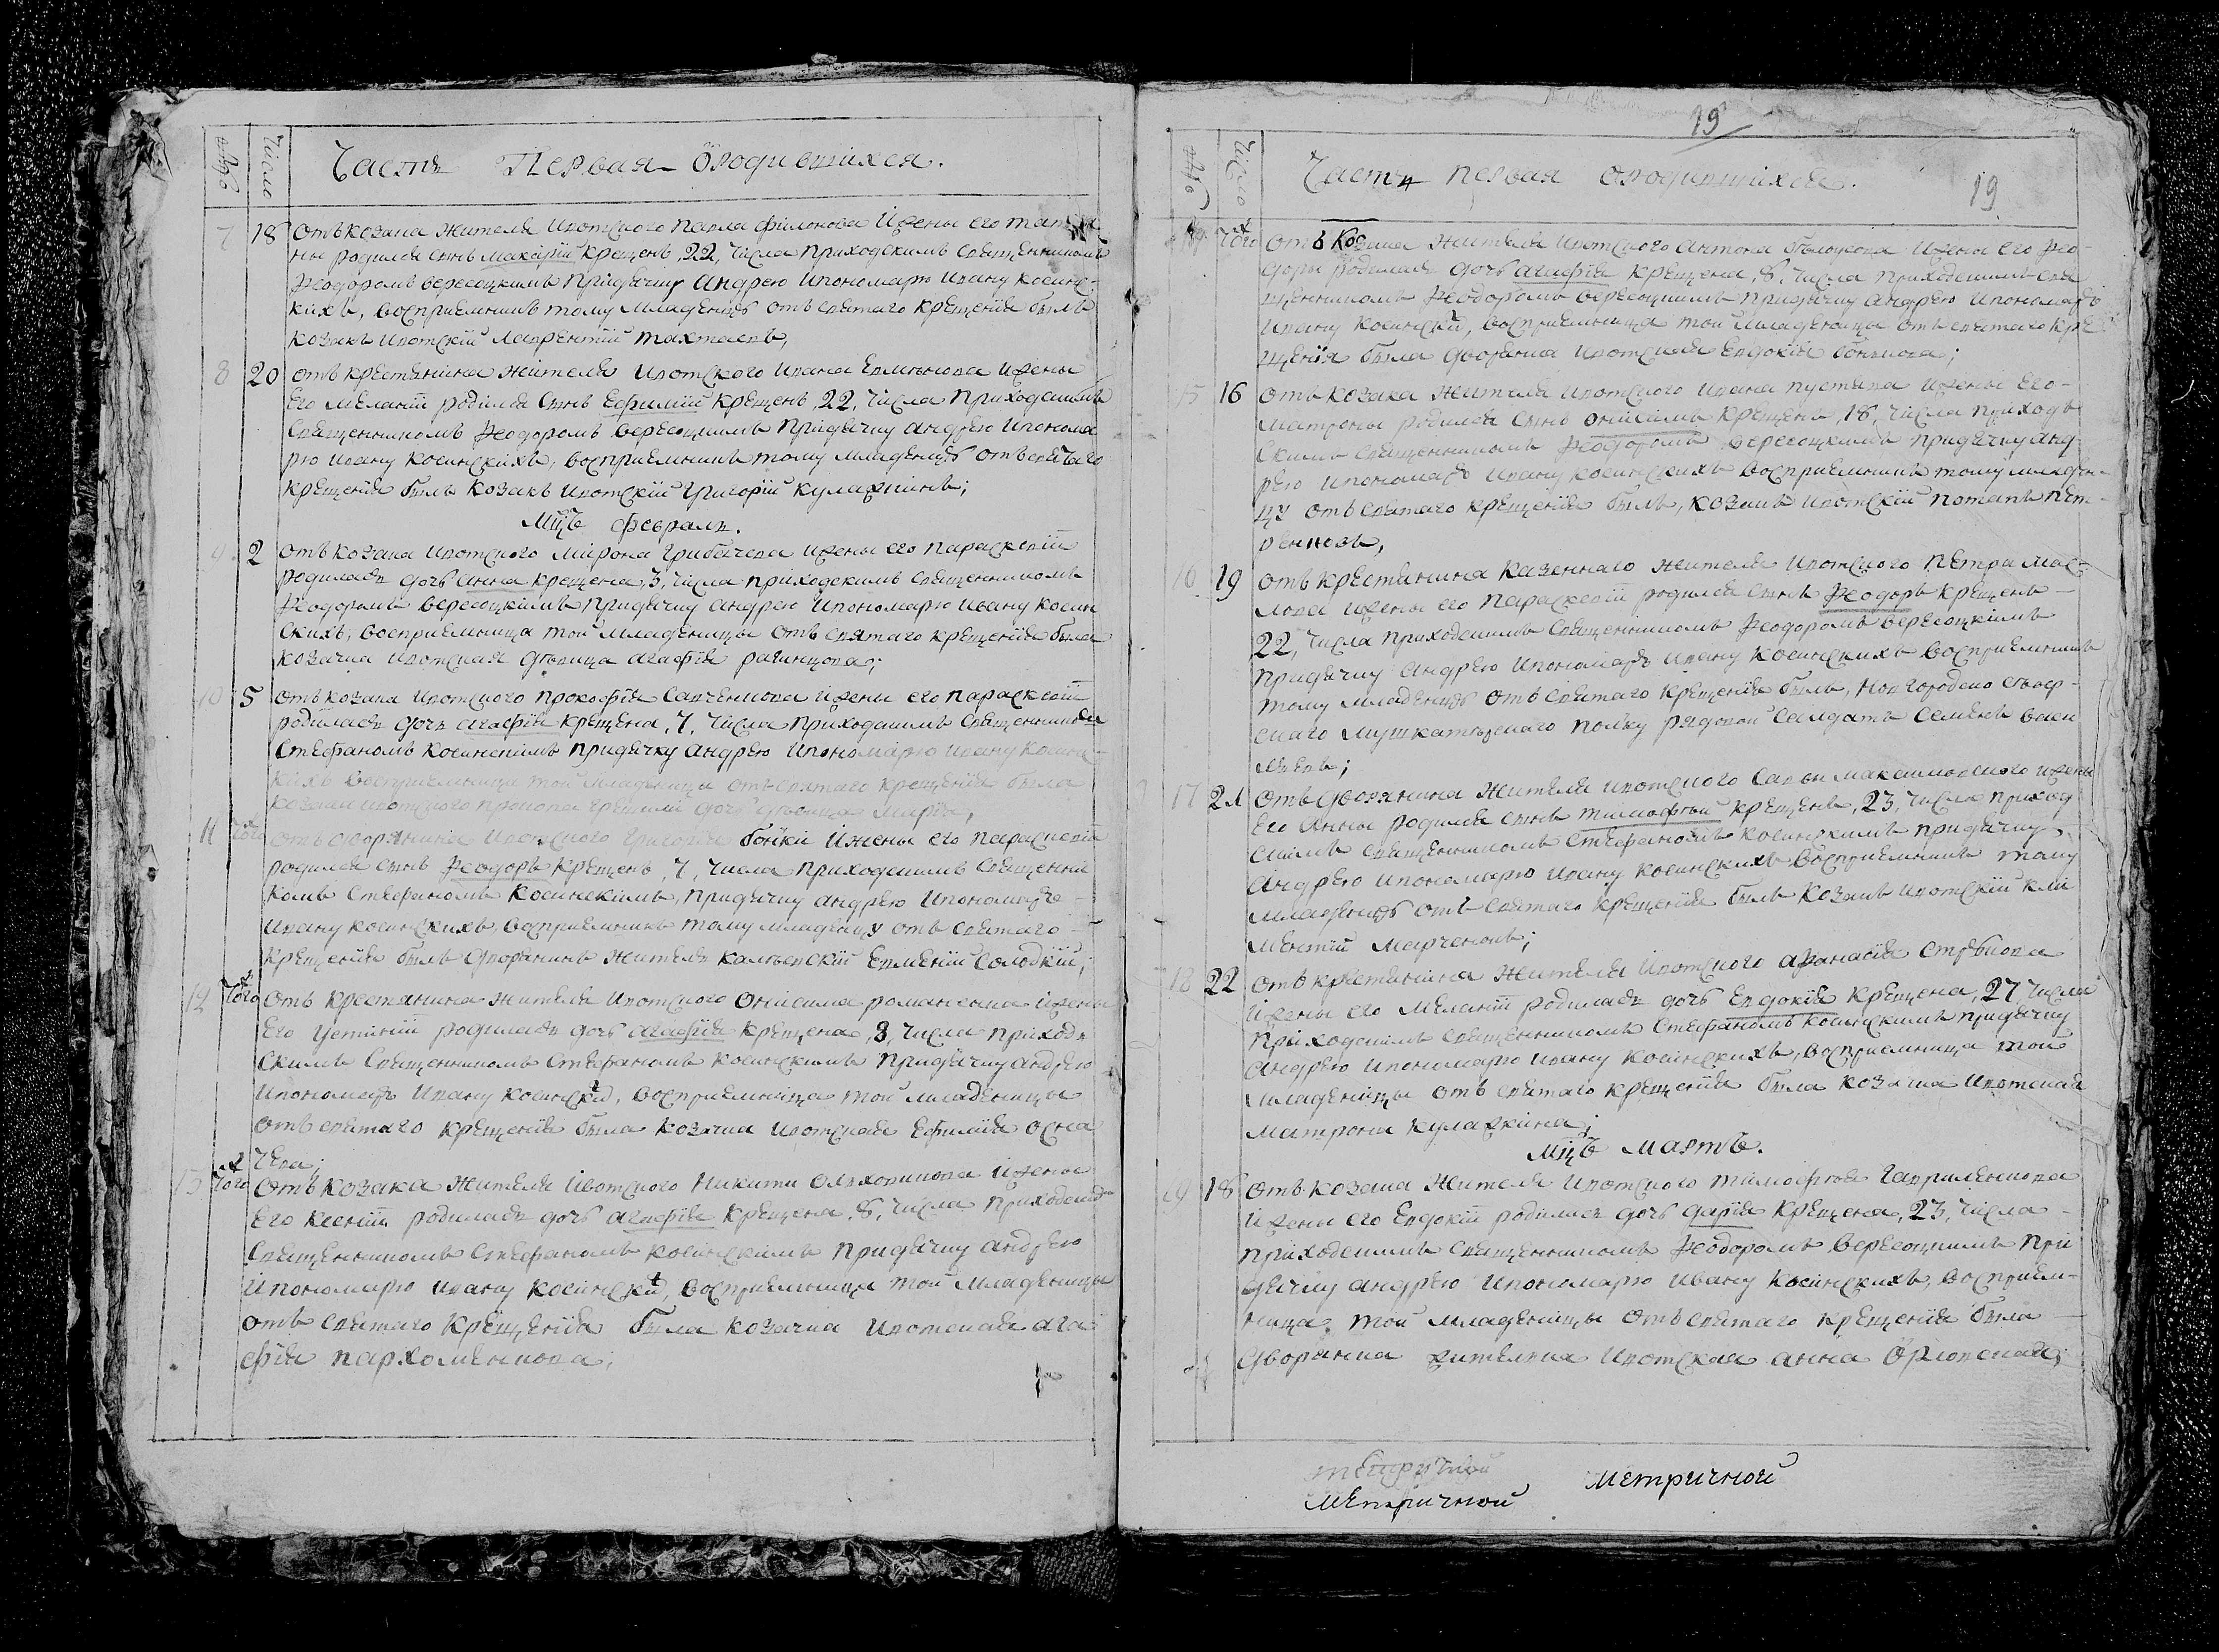 Число
Часть Первая Ородившихся.
7 18 Отъ козака жителя Ивотского Павла Филонова Ижены его Татия
ны родился сынъ Макарій крещенъ, 22, числа приходскимъ священникомъ
Феодоромъ Вересоцкимъ придячку Андрею Ипономарю Ивану Косинс-
кихъ, восприемникъ тому младенцу отъ святаго крещенія былъ
козакъ Ивотскій Лаврентій
8 20 Отъ крестянина жителя Ивотского Ивана Ижены
Его Меланіи родился сынъ Ефимій крещенъ, 22, числа приходскимъ
священникомъ Феодоромъ Вересоцкимъ придячку Андрею Ипонома
рю Ивану Косинскихъ, восприемникъ тому младенцу отъ святаго
крещенія былъ козакъ Ивотскій Григорій Кулажкинъ;
Мцъ Февраль.
9 2 Отъ козака Ивотского Мирона Грибачева Ижены его Параскевіи
родилась дочь Анна крещена, 3, числа приходскимъ священникомъ
Феодоромъ Вересоцкимъ придячку Андрею Ипономарю Ивану Косин
скихъ; восприемница той младеницы отъ святаго крещенія была
козачка Ивотская девица Агафія
10 5 Отъ козака Ивотского Прокофія Савченкова Ижены его Параскевіи
родилась дочь Агафія крещена, 7, числа приходскимъ священником
Стефаномъ Косинскимъ придячку Андрею Ипономарю Ивану Косинс-
кихъ восприемница той младеницы отъ святаго крещенія была
козака Ивотского дочь девица Марфа,
11 Того Отъ дворянина Ивотского Григорія Бойки Ижены его Параскевіи
родился сынъ Феодоръ крещенъ, 7, числа приходскимъ священни
комъ Стефаномъ Косинскимъ, придячку Андрею Ипономарю
Ивану Косинскихъ, восприемникъ тому младенцу отъ святаго
крещенія былъ дворянинъ житель Еремій Солодкій;
12 Того Отъ крестянина жителя Ивотского Онисима Романенка Ижены
Его Устиніи родилась дочь Агафія крещена, 8, числа приход
скимъ священникомъ Стефаномъ Косинскимъ придячку Андрею
Ипономарю Ивану Косинскихъ, восприемница той младеницы
отъ святаго крещенія была козачка Ивотская Ефимія Осна
чева;
13 Того Отъ козака жителя Ивотского Никити Олховикова Ижены
Его Ксеніи родилась дочь Агафія крещена, 8, числа приходскимъ
священникомъ Стефаномъ Косинскимъ придячку Андрею
Ипономарю Ивану Косинскихъ, восприемница той младеницы
отъ святаго крещенія была козачка Ивотская Ага
фія Пархоменкова;
19
Число
Часть первая ородившихся. 19
14 Того Отъ козака жителя Ивотского Антона Ижены его Фео-
доры родилась дочь Агафія крещена, 8, числа приходскимъ свя
щенникомъ Феодоромъ Вересоцкимъ придячку Андрею Ипономарю
Ивану Косинских, восприемница той младеницы отъ святаго кре
щенія была дворянка Ивотская Евдокія;
15 16 Отъ козака жителя Ивотского Ивана Пустыка Ижены Его-
Матроны родился сынъ Онисимъ крещенъ, 18, числа приход
скимъ священникомъ Феодоромъ Вересоцкимъ придячку Анд
рею Ипономарю Ивану Косинскихъ восприемникъ тому младен-
цу отъ святаго крещенія былъ, козакъ Ивотскій Потапъ Пет-
ренковъ,
16 19 Отъ крестянина казеннаго жителя Ивотского Петра Мас-
лова Ижены его Параскевіи родился сынъ Феодоръ крещенъ-
22, числа приходскимъ священникомъ Феодоромъ Вересоцкимъ
придячку Андрею Ипономарю Ивану Косинскихъ восприемникъ
тому младенцу отъ святаго крещенія былъ, Новгородско север-
скаго мушкатерскаго полку рядовой салдатъ Семенъ Васи
левъ;
17 21 Отъ дворянина жителя Ивотского Савы Максимовского Ижены
Его Анны родился сынъ Тимофей крещенъ, 23, числа приход
скимъ священникомъ Стефаномъ Косинскимъ придячку
Андрею Ипономарю Ивану Косинскихъ восприемникъ тому
младенцу отъ святаго крещенія былъ козакъ Ивотскій Кли
ментій Марченокъ;
18 22 Отъ крестянина жителя Ивотского Афанасія
Ижены его Меланіи родилась дочь Евдокія крещена, 27, числа
приходскимъ священникомъ Стефаномъ Косинскимъ придячку
Андрею Ипономарю Ивану Косинскихъ, восприемница той
младеницы отъ святаго крещенія была козачка Ивотская
Матрона Кулажкина;
Мцъ Мартъ.
19 18 Отъ козака жителя Ивотского Тимофея Гавриленкова
Ижены его Евдокіи родилась дочь Дарія крещена, 23, числа-
приходскимъ священникомъ Феодоромъ Вересоцкимъ при
дячку Андрею Ипономарю Ивану Косинскихъ, восприем-
ница той младеницы отъ святаго крещенія была
дворянка жителка Ивотская Анна Орловская;
Метричной
Метричной